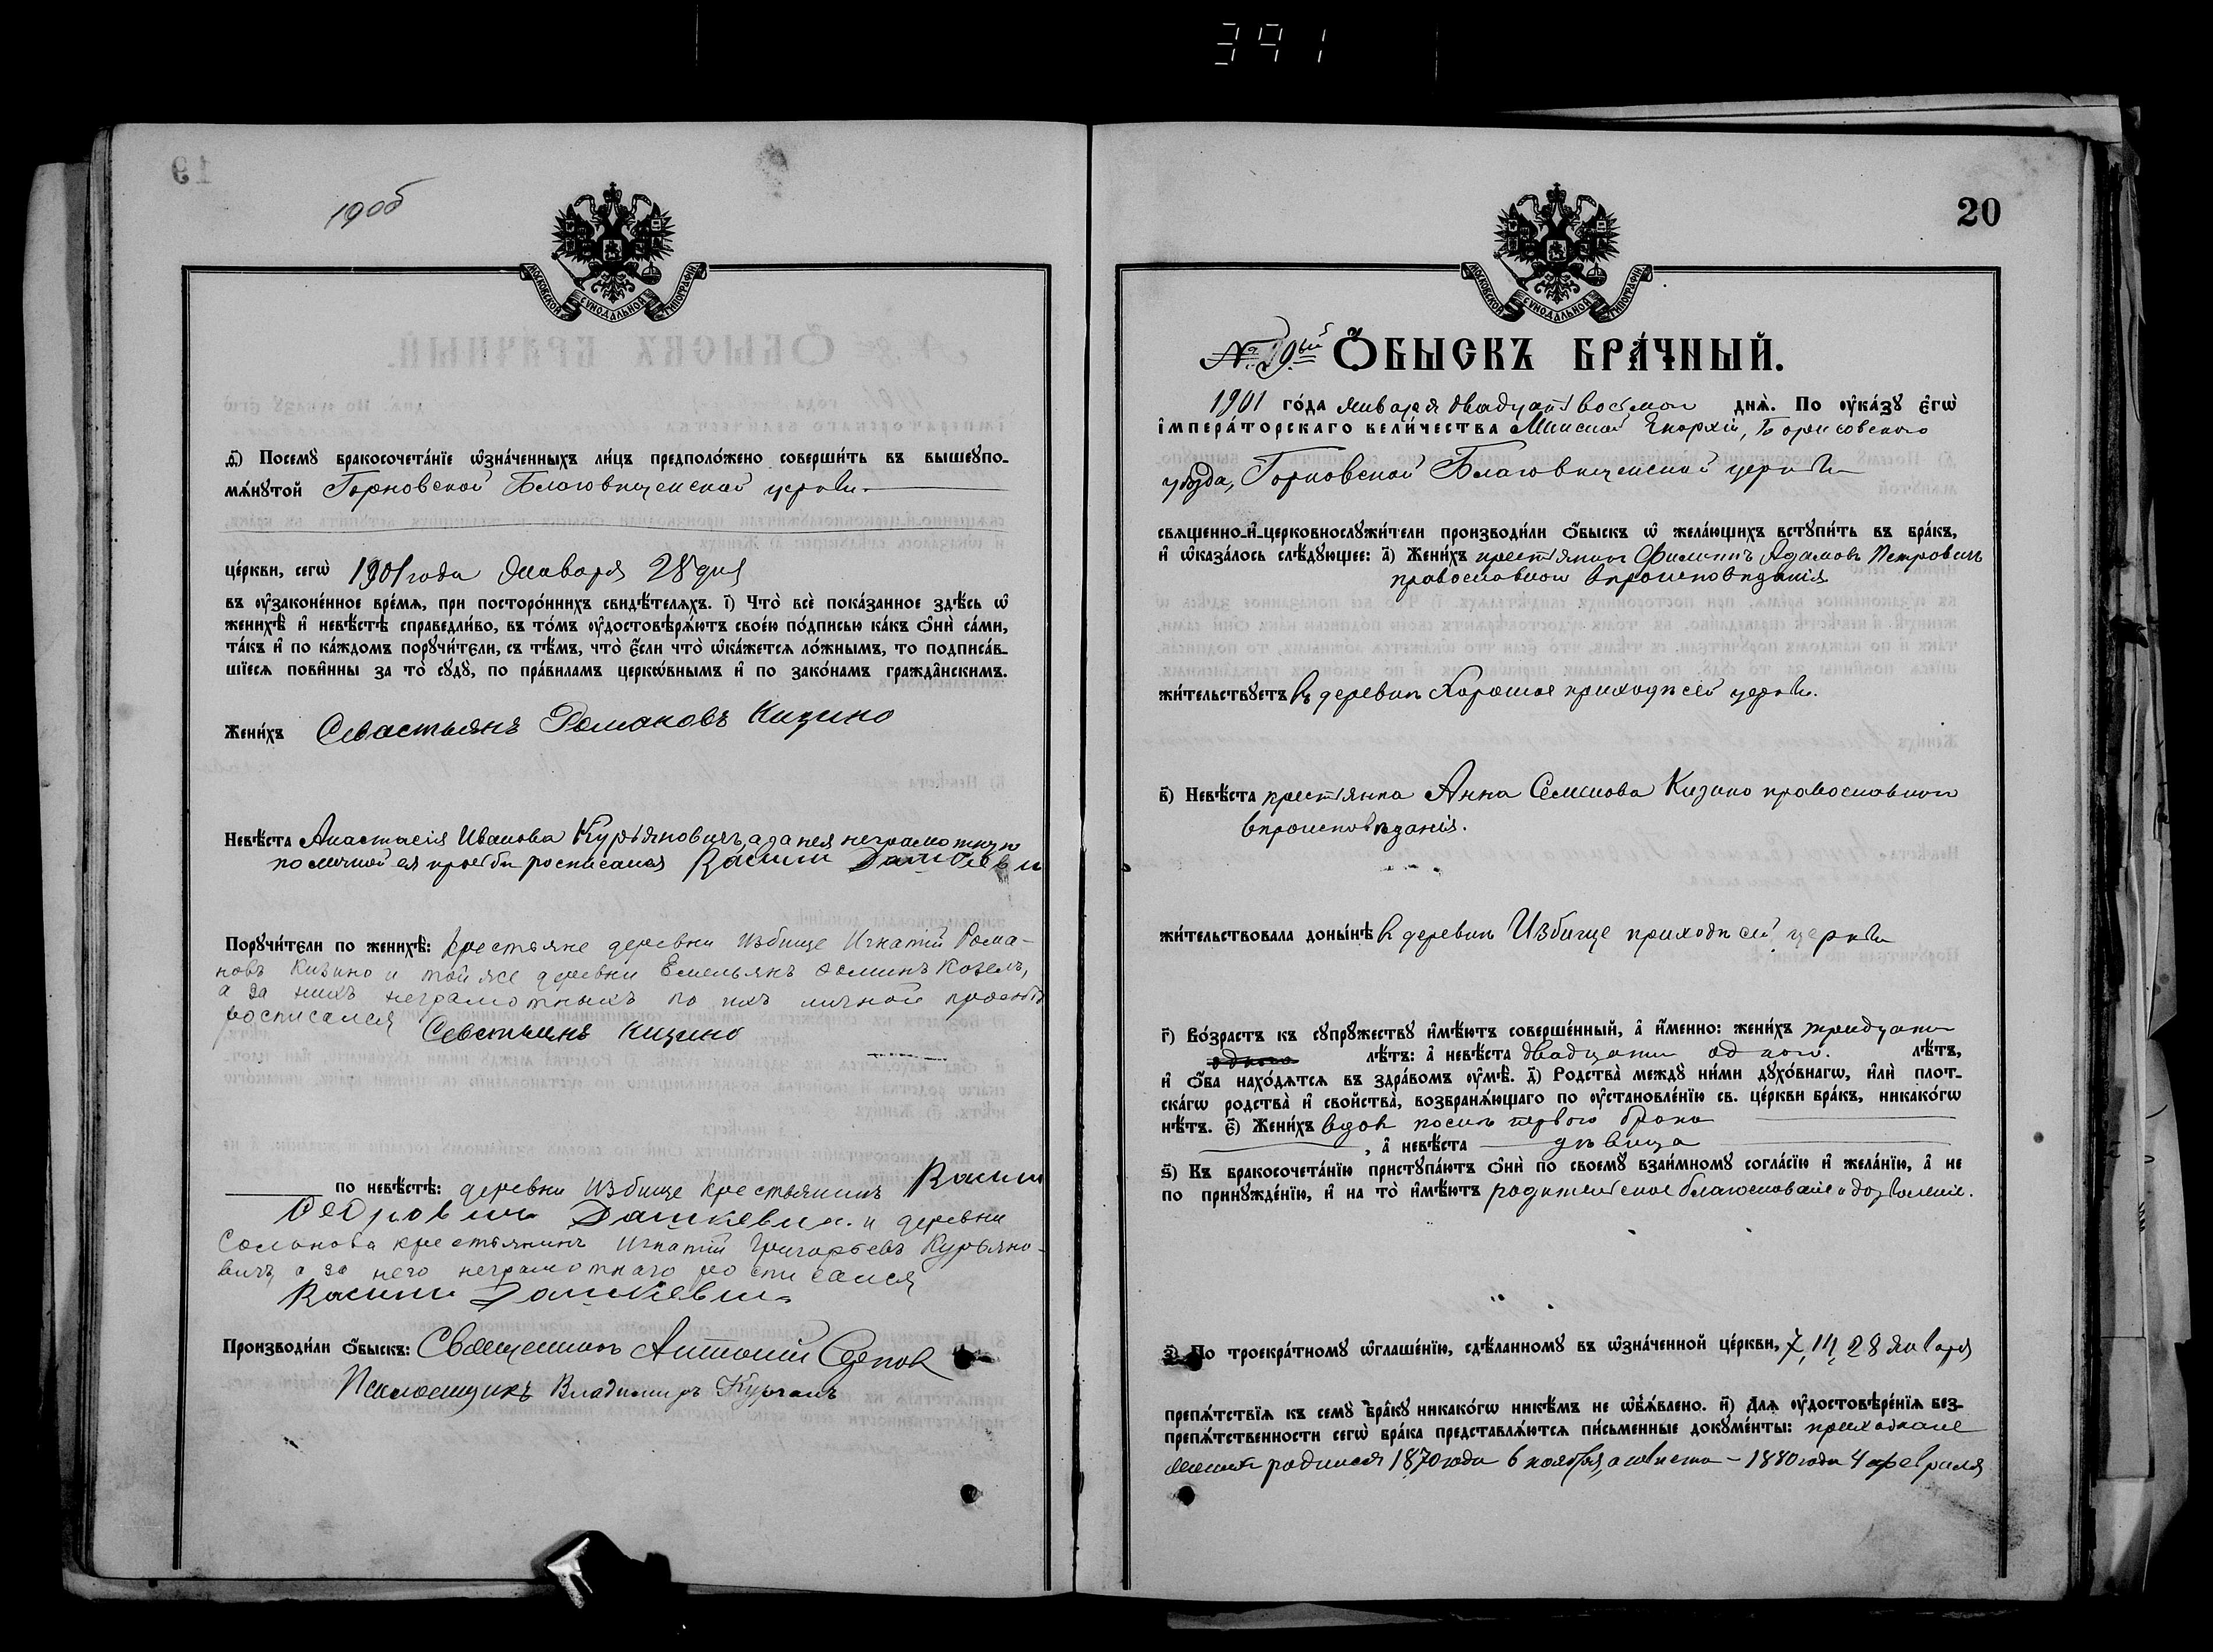 391
19
1900
МОСКОВСКОЙ СУНОДАЛЬНОЙ ТИПОГРАФІИ
д҃) Посемꙋ бракосочета́нїе ѡ҆зна́ченныхъ ли́цъ предполо́жено соверши́ть въ вышеꙋпо-
мѧ́нꙋтой Горковской Благовѣщенской церкви
це́ркви, сегѡ̀ 1901 года Января 28 дня
въ ᲂу҆законе́нное вре́мѧ, при посторо́ннихъ свидѣ́телѧхъ. і҃) Что̀ всѐ пока́занное здѣ́сь ѡ҆
женихѣ̀ и҆ невѣ́стѣ справедли́во, въ то́мъ ᲂу҆достовѣрѧ́ютъ свое́ю по́дписью ка́къ ѻ҆нѝ са́ми,
та́къ и҆ по ка́ждомъ порꙋчи́тели, съ тѣ́мъ, что̀ є҆́сли что̀ ѡ҆ка́жетсѧ ло́жнымъ, то подписа́в-
шїесѧ пови́нны за то̀ сꙋдꙋ̀, по пра́виламъ церкѡ́внымъ и҆ по зако́намъ гражда̑нскимъ.
Жени́хъ Севастьянъ Романовъ Кизино
Невѣ́ста Анастасія Иванова Курьяновичъ, а за нея неграмотную
по личной ея просьбѣ росписался Василій Дашкевич
Порꙋчи́тєли по женихѣ̀: крестьяне деревни Избище Игнатій Рома-
новъ Кизино и той же деревни Емельянъ Козелъ,
а за нихъ неграмотныхъ по ихъ личной просьбѣ
росписался Севстьянъ Кизино
по невѣ́стѣ: деревни Избище крестьянинъ Василій
Дашкевич. и деревни
крестьянинъ Игнатій Григорьевъ Курьяно-
вичъ, а за него неграмотнаго росписался
Василій Дашкевич
Производи́ли ѻ҆́быскъ: Священникъ Антоній
Псаломщикъ Владиміръ Курганъ
20
МОСКОВСКОЙ СУНОДАЛЬНОЙ ТИПОГРАФІИ
№ 19ый ѺБЫСКЪ БРА́ЧНЫЙ.
1901 го́да января двадцать восьмого днѧ̀. По ᲂу҆ка́зꙋ є҆гѡ̀
і҆мпера́торскаго вели́чества Минской Епархіи, Борисовского
уѣзда, Горковской Благовѣщенской церкви
свѧщенно-и҆-церковнослꙋжи́тели производи́ли ѻ҆́быскъ ѡ҆ жела́ющихъ встꙋпи́ть въ бра́къ,
и҆ ѡ҆каза́лось слѣ́дꙋющее: а҃) Жени́хъ крестьянинъ Филиппъ Адамовъ Петровичъ
православного вѣроисповѣданія
жи́тельствꙋетъ въ деревнѣ Хорошое приходѣ сей церкви.
в҃) Невѣ́ста крестьянка Анна Семенова Кизино православного
вѣроисповѣданія.
жи́тельствовала доны́нѣ в деревнѣ Избище приходѣ сей церкви
г҃) Во́зрастъ къ сꙋпрꙋ́жествꙋ и҆мѣ́ютъ соверше́нный, а҆ и҆́менно: жени́хъ тридцати
одного лѣ́тъ: а҆ невѣ́ста двадцати одного. лѣ́тъ,
и҆ ѻ҆́ба нахо́дѧтсѧ въ здра́вомъ ᲂу҆мѣ̀. д҃) Родства̀ междꙋ ни́ми дꙋхо́внагѡ, и҆лѝ плот-
ска́гѡ родства̀ и҆ сво́йства, возбранѧ́ющаго по ᲂу҆становле́нїю св. це́ркви бра́къ, никако́гѡ
нѣ́тъ. є҃) Жени́хъ вдов послѣ первого брака
, а҆ невѣ́ста дѣвица
ѕ҃) Къ бракосочета́нїю пристꙋпа́ютъ ѻ҆нѝ по своемꙋ̀ взаи́мномꙋ согла́сїю и҆ жела́нїю, а҆ не
по принꙋжде́нїю, и҆ на то̀ и҆мѣ́ютъ родительское благословеніе и дозволеніе.
з҃) По троекра́тномꙋ ѡ҆глаше́нїю, сдѣ́ланномꙋ въ ѡ҆зна́ченной це́ркви, 7, 14, 28 января
препѧ́тствїѧ къ семꙋ̀ бра́кꙋ никако́гѡ никѣ́мъ не ѡ҆б̾ѧ́влено. и҃) Длѧ ᲂу҆достовѣре́нїѧ без-
препѧ́тственности сегѡ̀ бра́ка представлѧ́ютсѧ пи́сьменные докꙋме́нты: прихожане
жених родился 1870 года 6 ноября, а невѣста – 1880 года 4 февраля